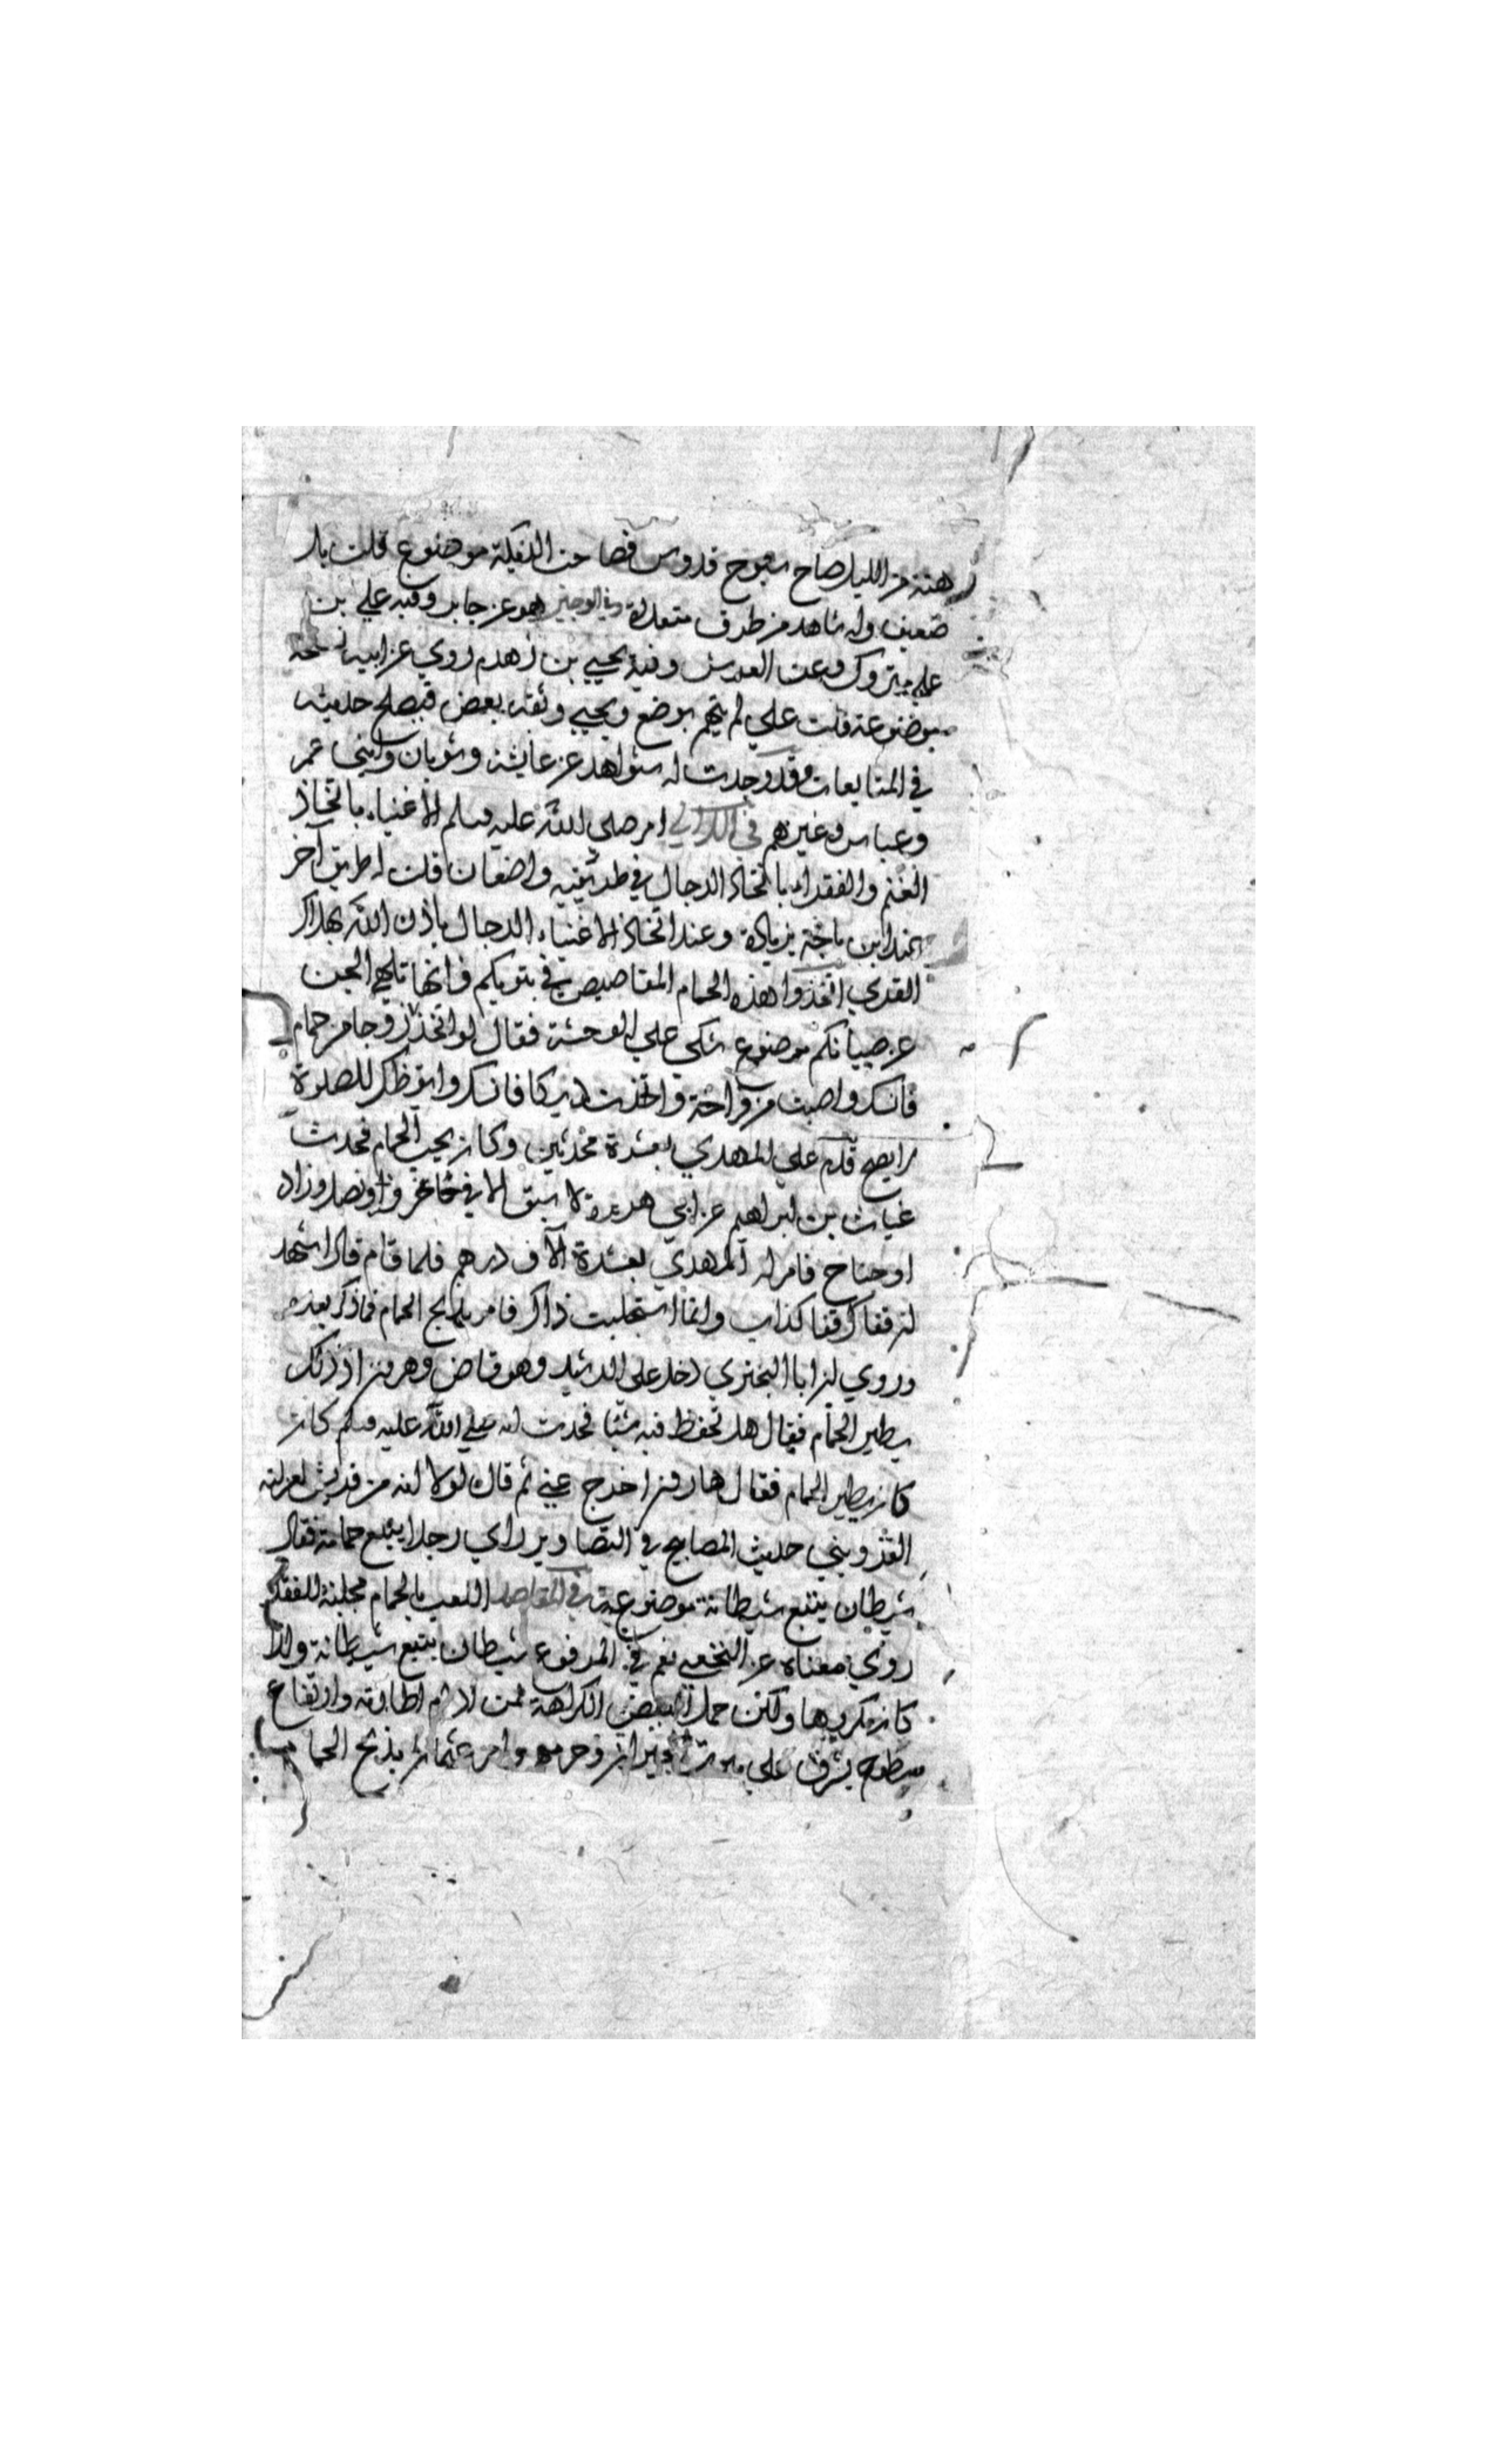 هنة من الليل صاح سبوح قدوس فصاحت الديكة موضوع قلت بل
ضعيف وله شاهد من طرق متعددة وفي الوجيز هو عن جابر وفيه علي بن
علي متروك وعن العرس وفيه يحيى بن زهدم روي عن ابيه نسخة
موضوعة قلت علي لم يتهم بوضع ويحيى وثقه بعض فيصلح حديثه
في المتابعات وقد وجدت له شواهد عن عايشة وثوبان وابني عمر
وعباس وغيرهم في اللآلي امر صلى الله عليه وسلم الاغنياء باتخاذ
الغنم والفقراء باتخاذ الدجاج في طريقيه واضعان قلت له طريق آخر
عند ابن ماجة بزيادة وعند اتخاذ الاغنياء الدجاج ياذن الله بهلاك
القرى اتخذوا هذه الحمام المقاصيص في بيوتكم فانها تلهي الجن
عن صبيانكم موضوع شكى علي الوحشة فقال لو اتخذت زوجا من حمام
فانسك واصبت من فراخه واتخذت ديكا فانسك وايقظك للصلوة
لم يصح قدم على المهدي بعشرة محدثين وكان يحب الحمام فحدث
غياث بن ابراهيم عن ابي هريرة لا سبق الا في حافر او نصل وزاد
او جناح فامر له المهدي بعشرة آلاف درهم فلما قام قال اشهد
ان قفاك قفا كذاب وانما استجلبت ذاك فامر بذبح الحمام فما ذكر بعده
وروي ان ابا البختري دخل على الرشيد وهو قاض وهرون اذ ذلك
يطير الحمام فقال هل تحفظ فيه شيئا فحدث انه صلى الله عليه وسلم كان
كان يطير الحمام فقال هارون اخرج عني ثم قال لولا انه من قريش لعزلته
القزويني حديث المصابيح في التصاوير راي رجلا يتبع حمامة فقال
شيطان يتبع شيطانة موضوع في المقاصد اللعب بالحمام مجلبة للفقر
روي معناه عن النخعي نعم في المرفوع شيطان يتبع شيطانة ولذا
كان يكرهها ولكن حمل البعض الكراهة لمن ادام اطارته وارتقاع
سطوح يشرف على بيوت الجيران وحرمهم وامر عثمان بذبح الحمام